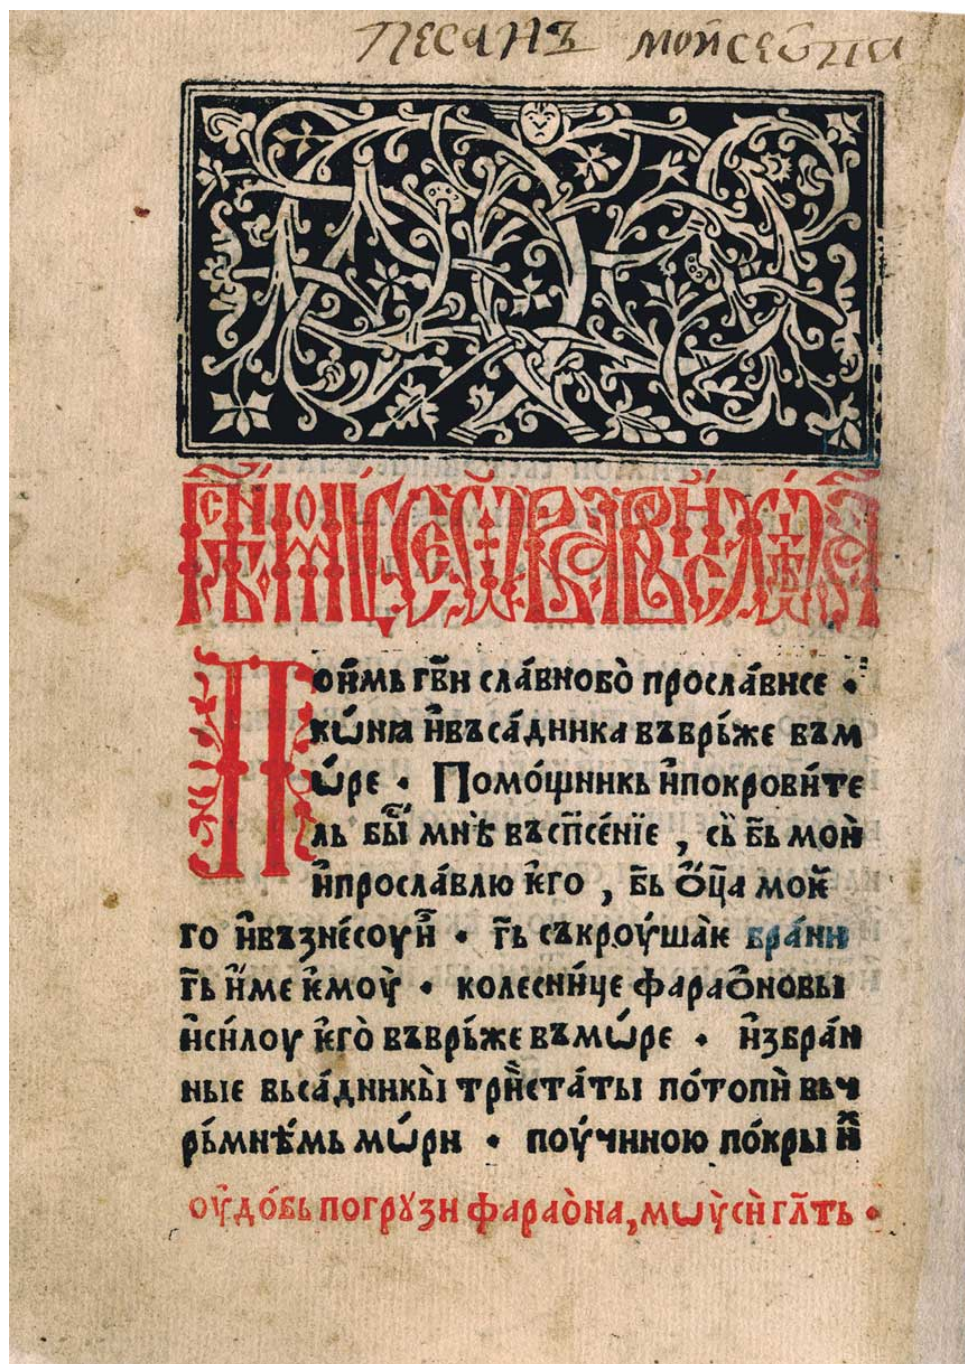 Песанъ мойсеѡва
Пои́мь гв҃и сла́внобо̀ просла́висе ·
кѡ́нꙗ и҆въса́дника въврь́же въм
ѡ́ре · Помо́щникь и҆покрови́те
ль бы́и҆ мнѣ̀ въсп҃се́нїе , сь̀ б҃ь мои҆
и҆просла́влю ѥ҆го , б҃ь ѻ҆ц҃а моѥ҆
го и҆възне́соуи҆ · г҃ь съкроу́ша̀ѥ бра́ни
г҃ь и҆́ме ѥ҆моу̀ · колесни́це фараѻ҆новы
и҆си́лоу ѥ҆го̀ въврь́же въмѡ́ре · и҆збра́н
ные вьса́дникы̀ трїи҆ста́ты по́топѝ вьч
рь́мнѣ́мь мѡ́ри · поу́чиною по́кры и҆х
оу҆до́бь погрꙋзи фарао̀на, мѡѵ̈си̏ гл҃ть ·